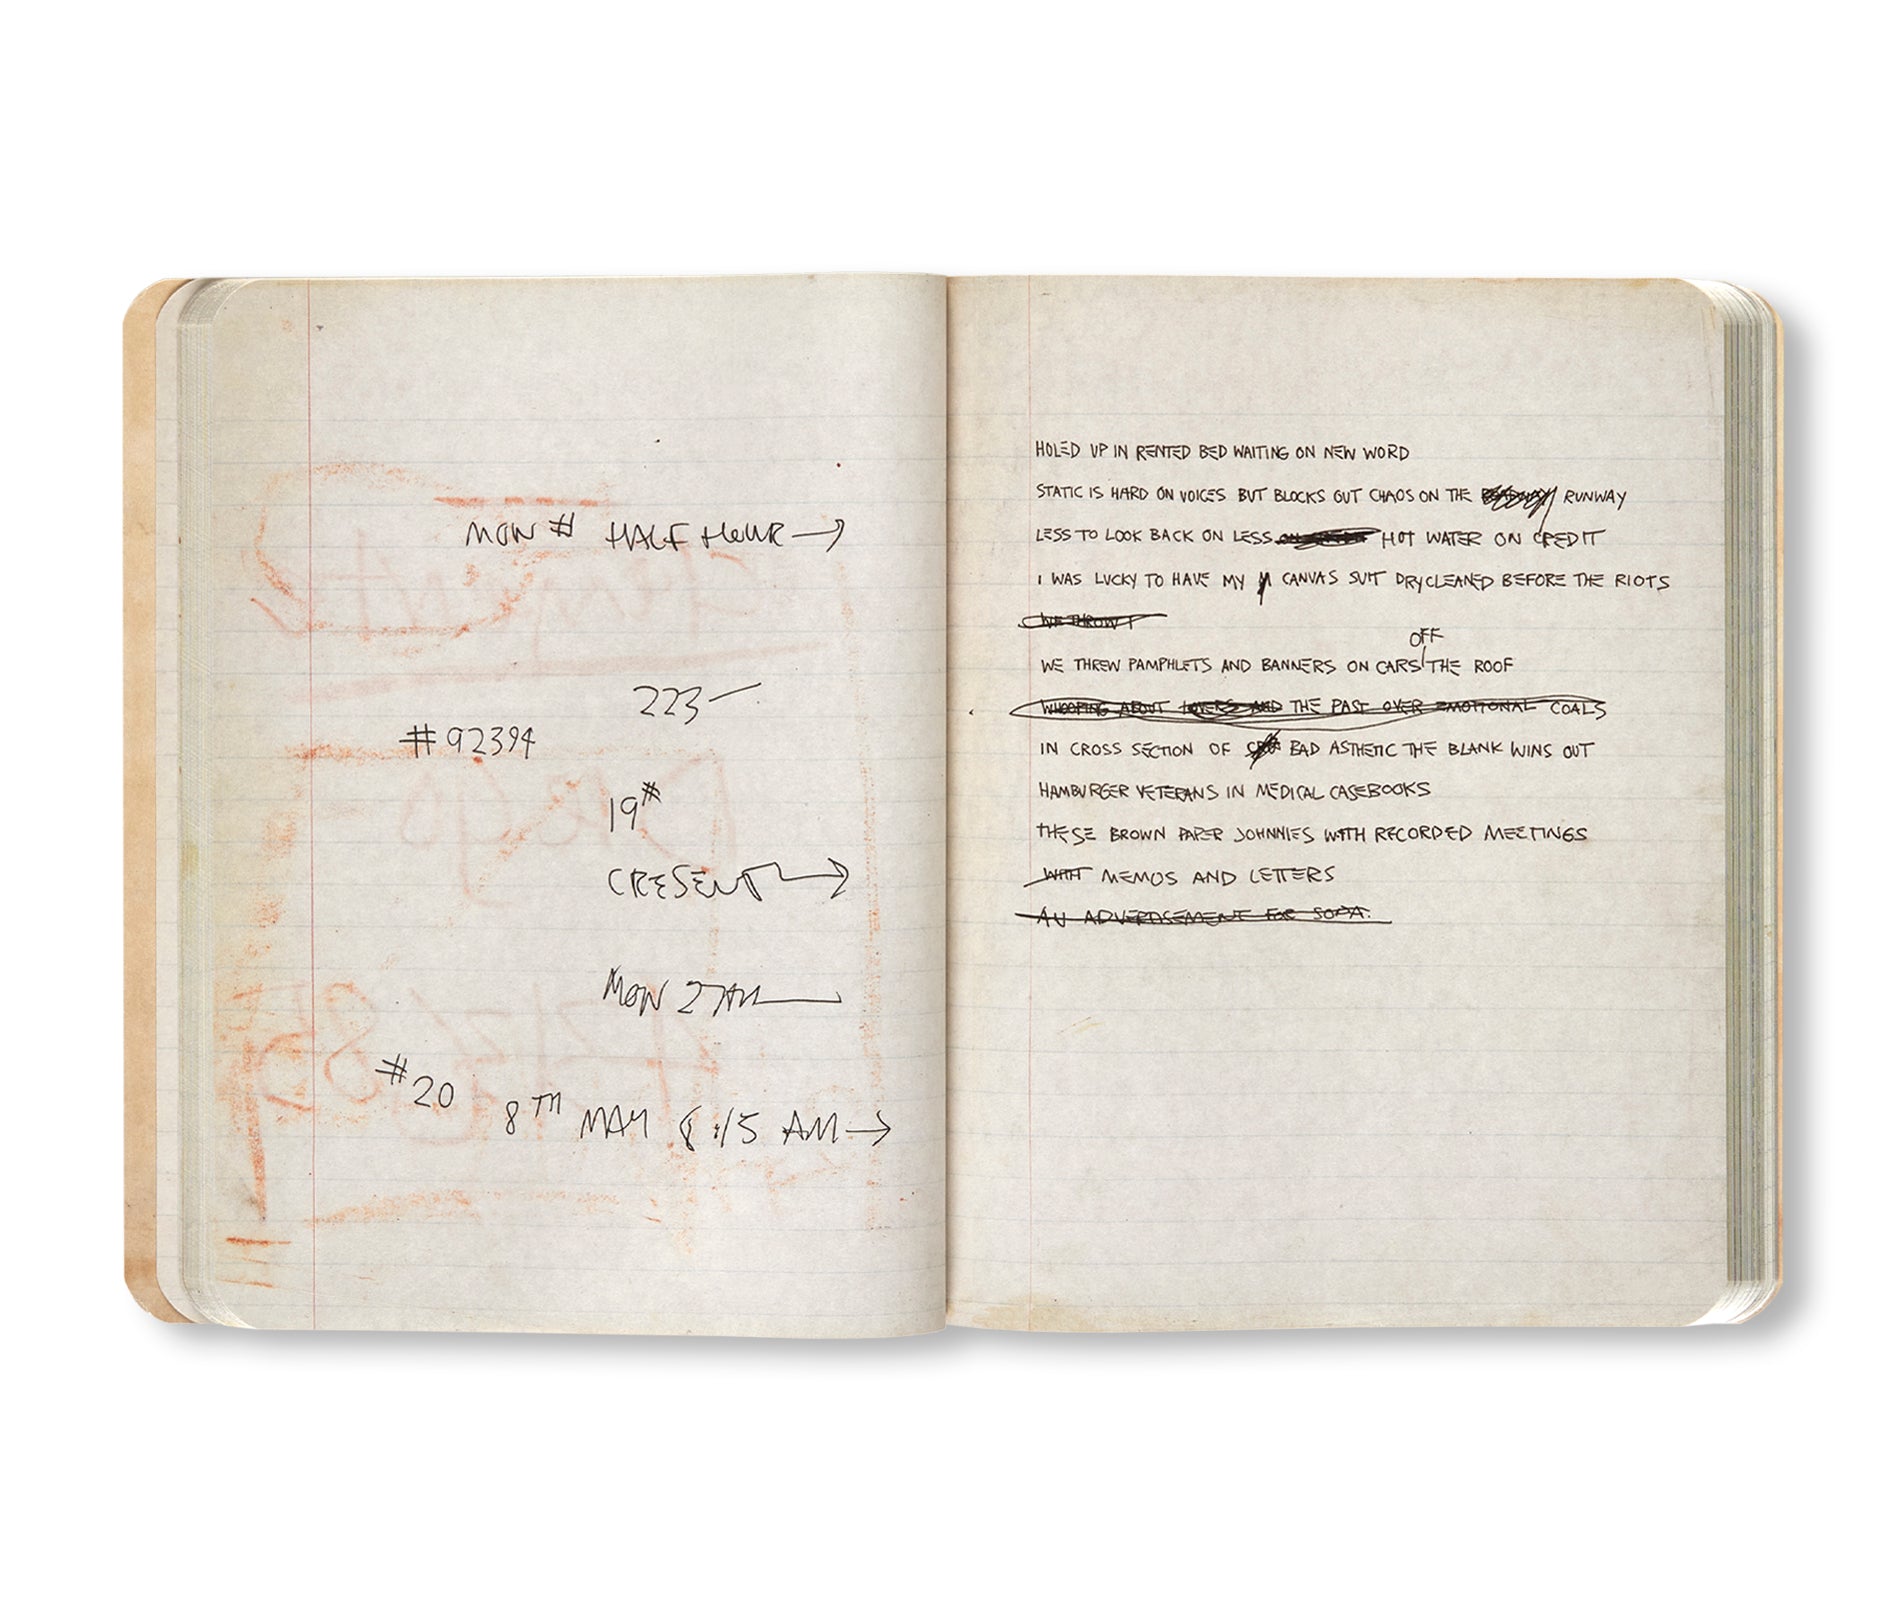 MON # HALF HOUR →
223—
#92394
19#
CRESENT →
MON 27TH
#20
8TH MAY 8:15 AM →
HOLED UP IN RENTED BED WAITING ON NEW WORD
STATIC IS HARD ON VOICES BUT BLOCKS OUT CHAOS ON THE RUNWAY
LESS TO LOOK BACK ON LESS HOT WATER ON CREDIT
I WAS LUCKY TO HAVE MY CANVAS SUIT DRYCLEANED BEFORE THE RIOTS
WE THROW
OFF
WE THREW PAMPHLETS AND BANNERS ON CARS THE ROOF
WHOOPING ABOUT LOVERS AND THE PAST OVER EMOTIONAL COALS
IN CROSS SECTION OF BAD ASTHETIC THE BLANK WINS OUT
HAMBURGER VETERANS IN MEDICAL CASEBOOKS
THESE BROWN PAPER JOHNNIES WITH RECORDED MEETINGS
WITH MEMOS AND LETTERS
AN ADVERTISEMENT FOR SODA.